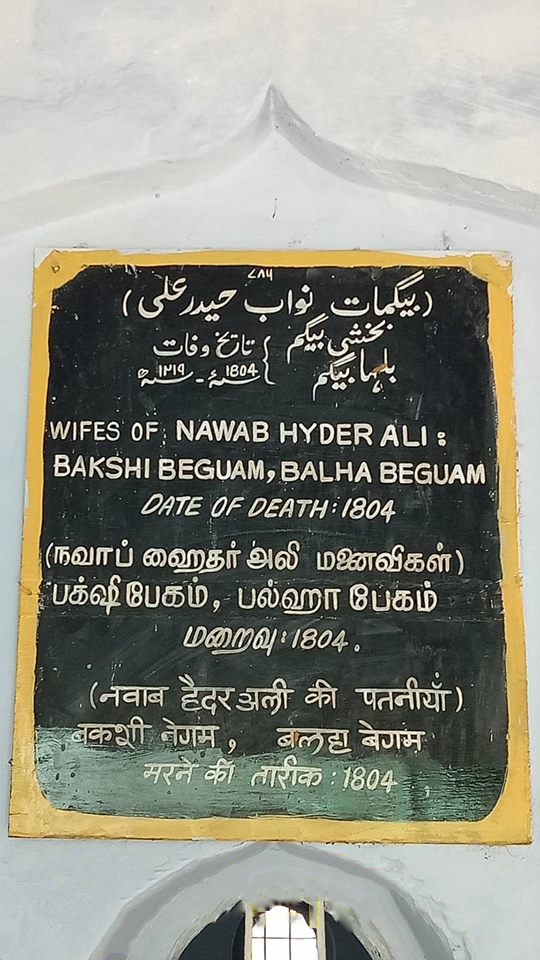 ۷۸۶
(بیگمات نواب حیدر علی)
بخشی بیگم
بلہا بیگم
تاریخ وفات
1804 سنہء - ۱۲۱۹ سنہھ
WIFES OF: NAWAB HYDER ALI :
BAKSHI BEGUAM, BALHA BEGUAM
DATE OF DEATH: 1804
(நவாப் ஹைதர் அலி மனைவிகள்)
பக்ஷி பேகம், பல்ஹா பேகம்
மறைவு: 1804.
(नवाब हैदर अली की पतनीयाँ)
बकशी बेगम, बलहा बेगम
मरने की तारीक : 1804